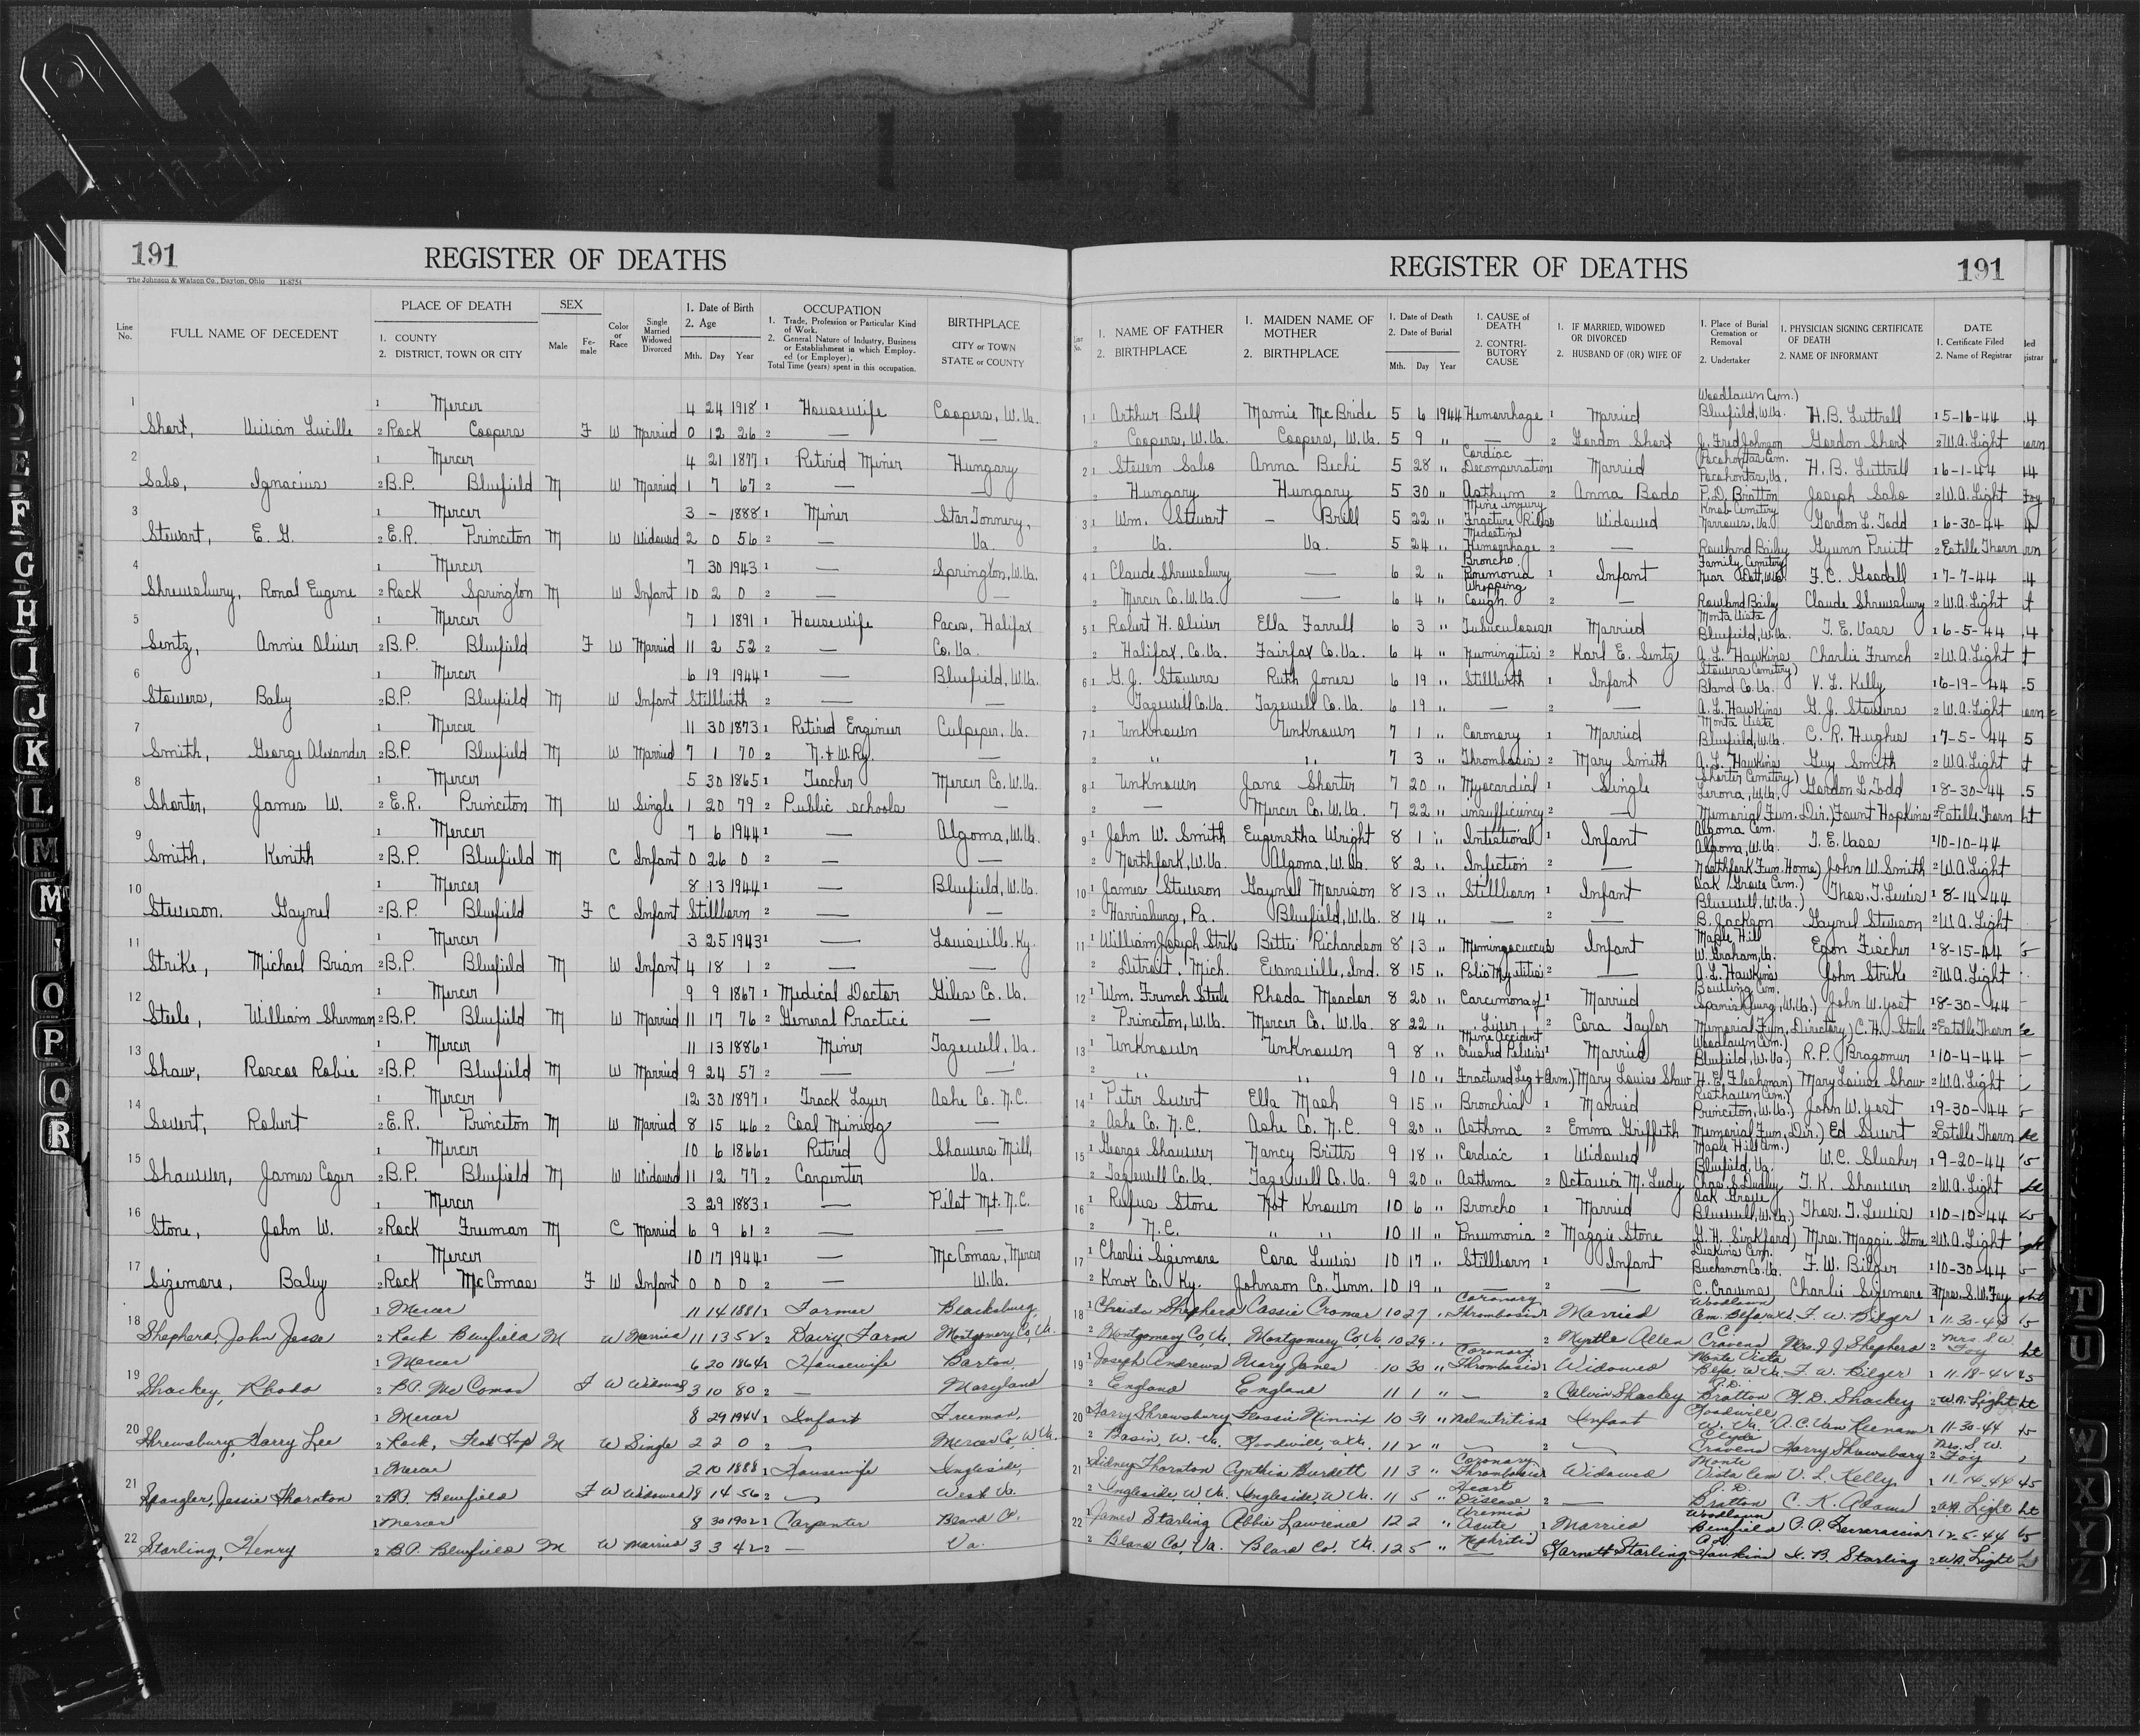 191
REGISTER OF DEATHS
The Johnson & Watson Co., Dayton, Ohio 11-8754
Line No.
FULL NAME OF DECEDENT
PLACE OF DEATH
1. COUNTY
2. DISTRICT, TOWN OR CITY
SEX
Male
Fe-male
Color or Race
Single Married Widowed Divorced
1. Date of Birth
2. Age
Mth. Day Year
OCCUPATION
1. Trade, Profession or Particular Kind of Work.
2. General Nature of Industry, Business or Establishment in which Employ-ed (or Employer).
Total Time (years) spent in this occupation.
BIRTHPLACE
CITY or TOWN
STATE or COUNTY
1 1 Mercer 4 24 1918 1 Housewife Coopers, W.Va.
Short, Vivian Lucille 2 Rock Coopers F W Married 0 12 26 2 — —
2 1 Mercer 4 21 1877 1 Retired Miner Hungary
Sabo, Ignacius 2 B.P. Bluefield M W Married 1 7 67 2 — —
3 1 Mercer 3 – 1888 1 Miner Star Tonnery,
Stewart, E. G. 2 E.R. Princeton M W Widowed 2 0 56 2 — Va.
4 1 Mercer 7 30 1943 1 — Springton, W.Va.
Shrewsbury, Ronal Eugene 2 Rock Springton M W Infant 10 2 0 2 — —
5 1 Mercer 7 1 1891 1 Housewife Paces, Halifax
Sentz, Annie Oliver 2 B.P. Bluefield F W Married 11 2 52 2 — Co. Va.
6 1 Mercer 6 19 1944 1 — Bluefield, W.Va.
Stowers, Baby 2 B.P. Bluefield M W Infant Stillbirth 2 — —
7 1 Mercer 11 30 1873 1 Retired Engineer Culpeper, Va.
Smith, George Alexander 2 B.P. Bluefield M W Married 7 1 70 2 N. & W. Ry. —
8 1 Mercer 5 30 1865 1 Teacher Mercer Co. W.Va.
Shorter, James W. 2 E.R. Princeton M W Single 1 20 79 2 Public schools —
9 1 Mercer 7 6 1944 1 — Algoma, W.Va.
Smith, Kenith 2 B.P. Bluefield M C Infant 0 26 0 2 — —
10 1 Mercer 8 13 1944 1 — Bluefield, W.Va.
Steveson. Gaynel 2 B.P. Bluefield F C Infant Stillborn 2 — —
11 1 Mercer 3 25 1943 1 — Louisville. Ky.
Strike, Michael Brian 2 B.P. Bluefield M W Infant 4 18 1 2 — —
12 1 Mercer 9 9 1867 1 Medical Doctor Giles Co. Va.
Steele, William Sherman 2 B.P. Bluefield M W Married 11 17 76 2 General Practice —
13 1 Mercer 11 13 1886 1 Miner Tazewell, Va.
Shaw, Roscoe Robie 2 B.P. Bluefield M W Married 9 24 57 2 — —
14 1 Mercer 12 30 1897 1 Track Layer Ashe Co. N.C.
Severt, Robert 2 E.R. Princeton M W Married 8 15 46 2 Coal Mining —
15 1 Mercer 10 6 1866 1 Retired Shawers Mill,
Shawver, James Coger 2 B.P. Bluefield M W Widowed 11 12 77 2 Carpenter Va.
16 1 Mercer 3 29 1883 1 — Pilot Mt. N.C.
Stone, John W. 2 Rock Freeman M C Married 6 9 61 2 — —
17 1 Mercer 10 17 1944 1 — McComas, Mercer
Sizemore, Baby 2 Rock McComas F W Infant 0 0 0 2 — W.Va.
18 1 Mercer 11 14 1881 1 Farmer Blacksburg
Shepherd, John Jesse 2 Rock Bluefield M W Married 11 13 52 2 Dairy Farm Montgomery Co, Va.
19 1 Mercer 6 20 1864 1 Housewife Barton,
Shockey, Rhoda 2 B.P. McComas F W Widowed 3 10 80 2 — Maryland
20 1 Mercer 8 29 1944 1 Infant Freeman,
Shrewsbury, Harry Lee 2 Rock, Flat Top M W Single 2 2 0 2 — Mercer Co, W.Va.
21 1 Mercer 2 10 1888 1 Housewife Ingleside,
Spangler, Jessie Thornton 2 B.P. Bluefield F W Widowed 8 14 56 2 — West Va.
22 1 Mercer 8 30 1902 1 Carpenter Bland Co.
Starling, Henry 2 B.P. Bluefield M W Married 3 3 42 2 — Va.
REGISTER OF DEATHS
191
1. NAME OF FATHER
2. BIRTHPLACE
1. MAIDEN NAME OF MOTHER
2. BIRTHPLACE
1. Date of Death
2. Date of Burial
Mth. Day Year
1. CAUSE of DEATH
2. CONTRI-BUTORY CAUSE
1. IF MARRIED, WIDOWED OR DIVORCED
2. HUSBAND OF (OR) WIFE OF
1. Place of Burial Cremation or Removal
2. Undertaker
1. PHYSICIAN SIGNING CERTIFICATE OF DEATH
2. NAME OF INFORMANT
DATE
1. Certificate Filed
2. Name of Registrar
Woodlawn Cem.)
1 1 Arthur Bell Mamie McBride 5 6 1944 Hemorrhage 1 Married Bluefield, W.Va. H.B. Luttrell 1 5-16-44
2 Coopers, W.Va. Coopers, W.Va. 5 9 " — 2 Gordon Short J. Fred Johnson Gordon Short 2 W.A. Light
2 1 Steven Sabo Anna Bechi 5 28 " Cardiac Decompensation 1 Married Pocahontas Cem. Pocahontas, Va. H.B. Luttrell 1 6-1-44
2 Hungary Hungary 5 30 " Asthum 2 Anna Bodo P.D. Bratton Joseph Sabo 2 W.A. Light
3 1 Wm. Stewart – Brill 5 22 " Mine injury Fracture Ribs Widowed Knob Cemetery Narrows, Va. Gordon L. Todd 1 6-30-44
2 Va. Va. 5 24 " Hemorrhage 2 — Rowland Baily Gyunn Pruitt 2 Estelle Thorn
4 1 Claude Shrewsbury — 6 2 " Broncho Pneumonia 1 Infant Family Cemetery Near Dott, W.Va. F.C. Goodall 1 7-7-44
2 Mercer Co. W.Va. — 6 4 " Whopping Cough. 2 — Rowland Baily Claude Shrewsbury 2 W.A. Light
5 1 Robert H. Oliver Ella Farrell 6 3 " Tuberculosis 1 Married Monta Vista Bluefield, W.Va. T.E. Vass 1 6-5-44
2 Halifax, Co. Va. Fairfax Co. Va. 6 4 " 2 Karl E. Sentz A.L. Hawkins Charlie French 2 W.A. Light
6 1 G.J. Stowers Ruth Jones 6 19 " Stillbirth 1 Infant Stowers Cemetery) Bland Co. Va. V.L. Kelly 1 6-19-44
2 Tazewell Co. Va. Tazewell Co. Va. 6 19 " — 2 — A.L. Hawkins G.J. Stowers 2 W.A. Light
7 1 Unknown Unknown 7 1 " Coronary 1 Married Monta Vista Bluefield, W.Va. C.R. Hughes 1 7-5-44
2 " " 7 3 " Thrombosis 2 Mary Smith A.L. Hawkins Guy Smith 2 W.A. Light
8 1 Unknown Jane Shorter 7 20 " Myocardial 1 Single Shorter Cemetery) Lerona, W.Va. Gordon L. Todd 1 8-30-44
2 — Mercer Co. W.Va. 7 22 " insufficiency 2 — Memorial Fun. Dir.) Fount Hopkins 2 Estelle Thorn
9 1 John W. Smith Eugenatha Wright 8 1 " Intestional 1 Infant Algoma Cem. Algoma, W.Va. T.E. Vass 1 10-10-44
2 Northfork, W.Va. Algoma, W.Va. 8 2 " Infection 2 — Northfork Fun. Home) John W. Smith 2 W.A. Light
10 1 James Steveson Gaynel Morrison 8 13 " Stillborn 1 Infant Oak Grove Cem.) Bluewell, W.Va.) Thos. T. Lewis 1 8-14-44
2 Harrisburg, Pa. Bluefield, W.Va. 8 14 " — 2 — B. Jackson Gaynel Steveson 2 W.A. Light
11 1 William Joseph Strike Bettie Richardson 8 13 " Infant Maple Hill W. Graham, Va. Egon Fischer 1 8-15-44
2 Detroit, Mich. Evansville, Ind. 8 15 " 2 — A.L. Hawkins John Strike 2 W.A. Light
12 1 Wm. French Steele Rhoda Meador 8 20 " Carcinoma of 1 Married Bowling Cem. Spanishburg, W.Va.) John W. Yost 1 8-30-44
2 Princeton, W.Va. Mercer Co. W.Va. 8 22 " Liver 2 Cora Taylor Memorial Fun. Directory) C.H. Steele 2 Estelle Thorn
13 1 Unknown Unknown 9 8 " Mine Accident Crushed Pelvis 1 Married Woodlawn Cem.) Bluefield, W.Va.) R.P. Bragomier 1 10-4-44
2 " " 9 10 " Fractured Leg & Arm.) Mary Louise Shaw H.E. Fleshman) Mary Louise Shaw 2 W.A. Light
14 1 Peter Severt Ella Mash 9 15 " Bronchial 1 Married Resthaven Cem.) Princeton, W.Va.) John W. Yost 1 9-30-44
2 Ashe Co. N.C. Ashe Co. N.C. 9 20 " Asthma 2 Emma Griffeth Memorial Fun. Dir.) Ed Severt 2 Estelle Thorn
15 1 George Shawver Nancy Britts 9 18 " Cardiac 1 Widowed Maple Hill Cem.) Bluefield, Va. W.C. Slusher 1 9-20-44
2 Tazewell Co. Va. Tazewell Co. Va. 9 20 " Asthema 2 Octavia M. Ludy Chas. S. Dudley T.K. Shawver 2 W.A. Light
16 1 Rufus Stone Not Known 10 6 " Broncho 1 Married Oak Grove Bluewell, W.Va.) Thos. T. Lewis 1 10-10-44
2 N.C. " " 10 11 " Pneumonia 2 Maggie Stone G.H. Sinkford) Mrs. Maggie Stone 2 W.A. Light
17 1 Charlie Sizemore Cora Lewis 10 17 " Stillborn 1 Infant Deskins Cem. Buchanon Co. Va. F.W. Bilger 1 10-30-44
2 Knox Co. Ky. Johnson Co. Tenn. 10 19 " — 2 — C. Cravens Charlie Sizemore 2 Mrs. S.W. Foy
18 1 Christo Shepherd Cassie Cromer 10 27 " Coronary Thrombosis 1 Married Woodlawn Cem. F.W. Bilger 1 11-30-44
2 Montgomery Co, Va. Montgomery Co, Va. 10 29 " 2 Myrtle Allen C. Cravens Mrs. J.J. Shepherd 2 Mrs. S.W. Foy
19 1 Joseph Andrews Mary Jones 10 30 " Coronary Thrombosis 1 Widowed Monte Vista Blfd. W.Va. F.W. Bilger 1 11-18-44
2 England England 11 1 " — 2 Calvin Shockey P.D. Bratton G.D. Shockey 2 W.A. Light
20 1 Harry Shrewsbury Flossie Minnix 10 31 " Malnutrition 1 Infant Goodwill W. Va. A.C. Van Reenan 1 11-30-44
2 Basin, W. Va. Goodwill, W.Va. 11 2 " — 2 — Clyde Cravens Harry Shrewsbury 2 Mrs. S.W. Foy
21 1 Sidney Thornton Cynthia Burdett 11 3 " Coronary Thrombosis 1 Widowed Monte Vista Cem V.L. Kelly 1 11-14-44
2 Ingleside, W.Va. Ingleside, W.Va. 11 5 " Heart Disease 2 — P.D. Bratton C.K. Adams 2 W.A. Light
22 1 James Starling Abbie Lawrence 12 2 " Uremia Acute 1 Married Woodlawn Bluefield 1 12-5-44
2 Bland Co, Va. Bland Co. Va. 12 5 " Nephritis 2 Garnett Starling A.L. Hawkins I.B. Starling 2 W.A. Light
D
E
F
G
H
I
J
K
L
M
M
O
P
Q
R
T
U
W
X
Y
Z